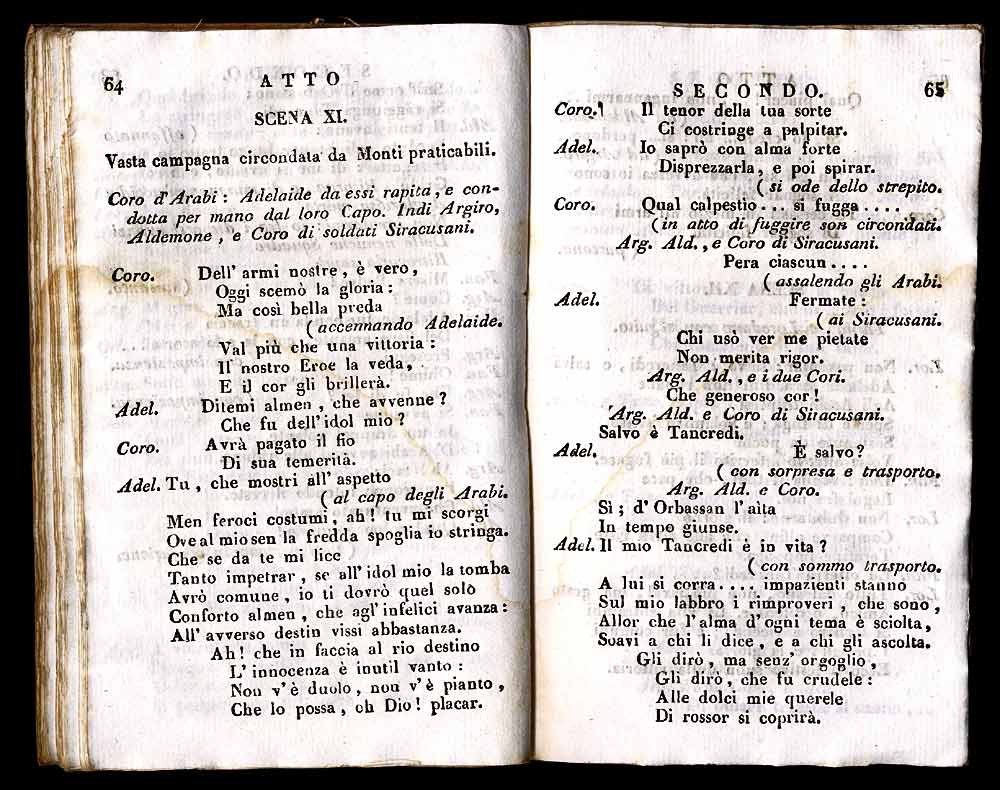 64
ATTO
SCENA XI.
Vasta campagna circondata da Monti praticabili.
Coro d'Arabi : Adelaide da essi rapita, e con-
dotta per mano dal loro Capo. Indi Argiro,
Aldemone, e Coro di soldati Siracusani.
Coro. Dell' armi nostre, è vero,
Oggi scemò la gloria :
Ma così bella preda
( accennando Adelaide.
Val più che una vittoria :
Il nostro Eroe la veda,
E il cor gli brillerà.
Adel. Ditemi almen, che avvenne ?
Che fu dell' idol mio ?
Coro. Avrà pagato il fio
Di sua temerità.
Adel. Tu, che mostri all' aspetto
( al capo degli Arabi.
Men feroci costumi, ah! tu mi scorgi
Ove al mio sen la fredda spoglia io stringa.
Che se da te mi lice
Tanto impetrar, se all' idol mio la tomba
Avrò comune, io ti dovrò quel solo
Conforto almen, che agl' infelici avanza :
All' avverso destin vissi abbastanza.
Ah! che in faccia al rio destino
L' innocenza è inutil vanto :
Non v' è duolo, non v' è pianto,
Che lo possa, oh Dio! placar.
SECONDO.
65
Coro. Il tenor della tua sorte
Ci costringe a palpitar.
Adel. Io saprò con alma forte
Disprezzarla, e poi spirar.
( si ode dello strepito.
Coro. Qual calpestio... si fugga....
(in atto di fuggire son circondati.
Arg. Ald., e Coro di Siracusani.
Pera ciascun....
( assalendo gli Arabi.
Adel. Fermate :
( ai Siracusani.
Chi usò ver me pietate
Non merita rigor.
Arg. Ald., e i due Cori.
Che generoso cor !
Arg. Ald. e Coro di Siracusani.
Salvo è Tancredi.
Adel. È salvo ?
( con sorpresa e trasporto.
Arg. Ald. e Coro.
Sì ; d' Orbassan l' aita
In tempo giunse.
Adel. Il mio Tancredi è in vita ?
( con sommo trasporto.
A lui si corra.... impazienti stanno
Sul mio labbro i rimproveri, che sono,
Allor che l' alma d' ogni tema è sciolta,
Soavi a chi li dice, e a chi gli ascolta.
Gli dirò, ma senz' orgoglio,
Gli dirò, che fu crudele :
Alle dolci mie querele
Di rossor si coprirà.